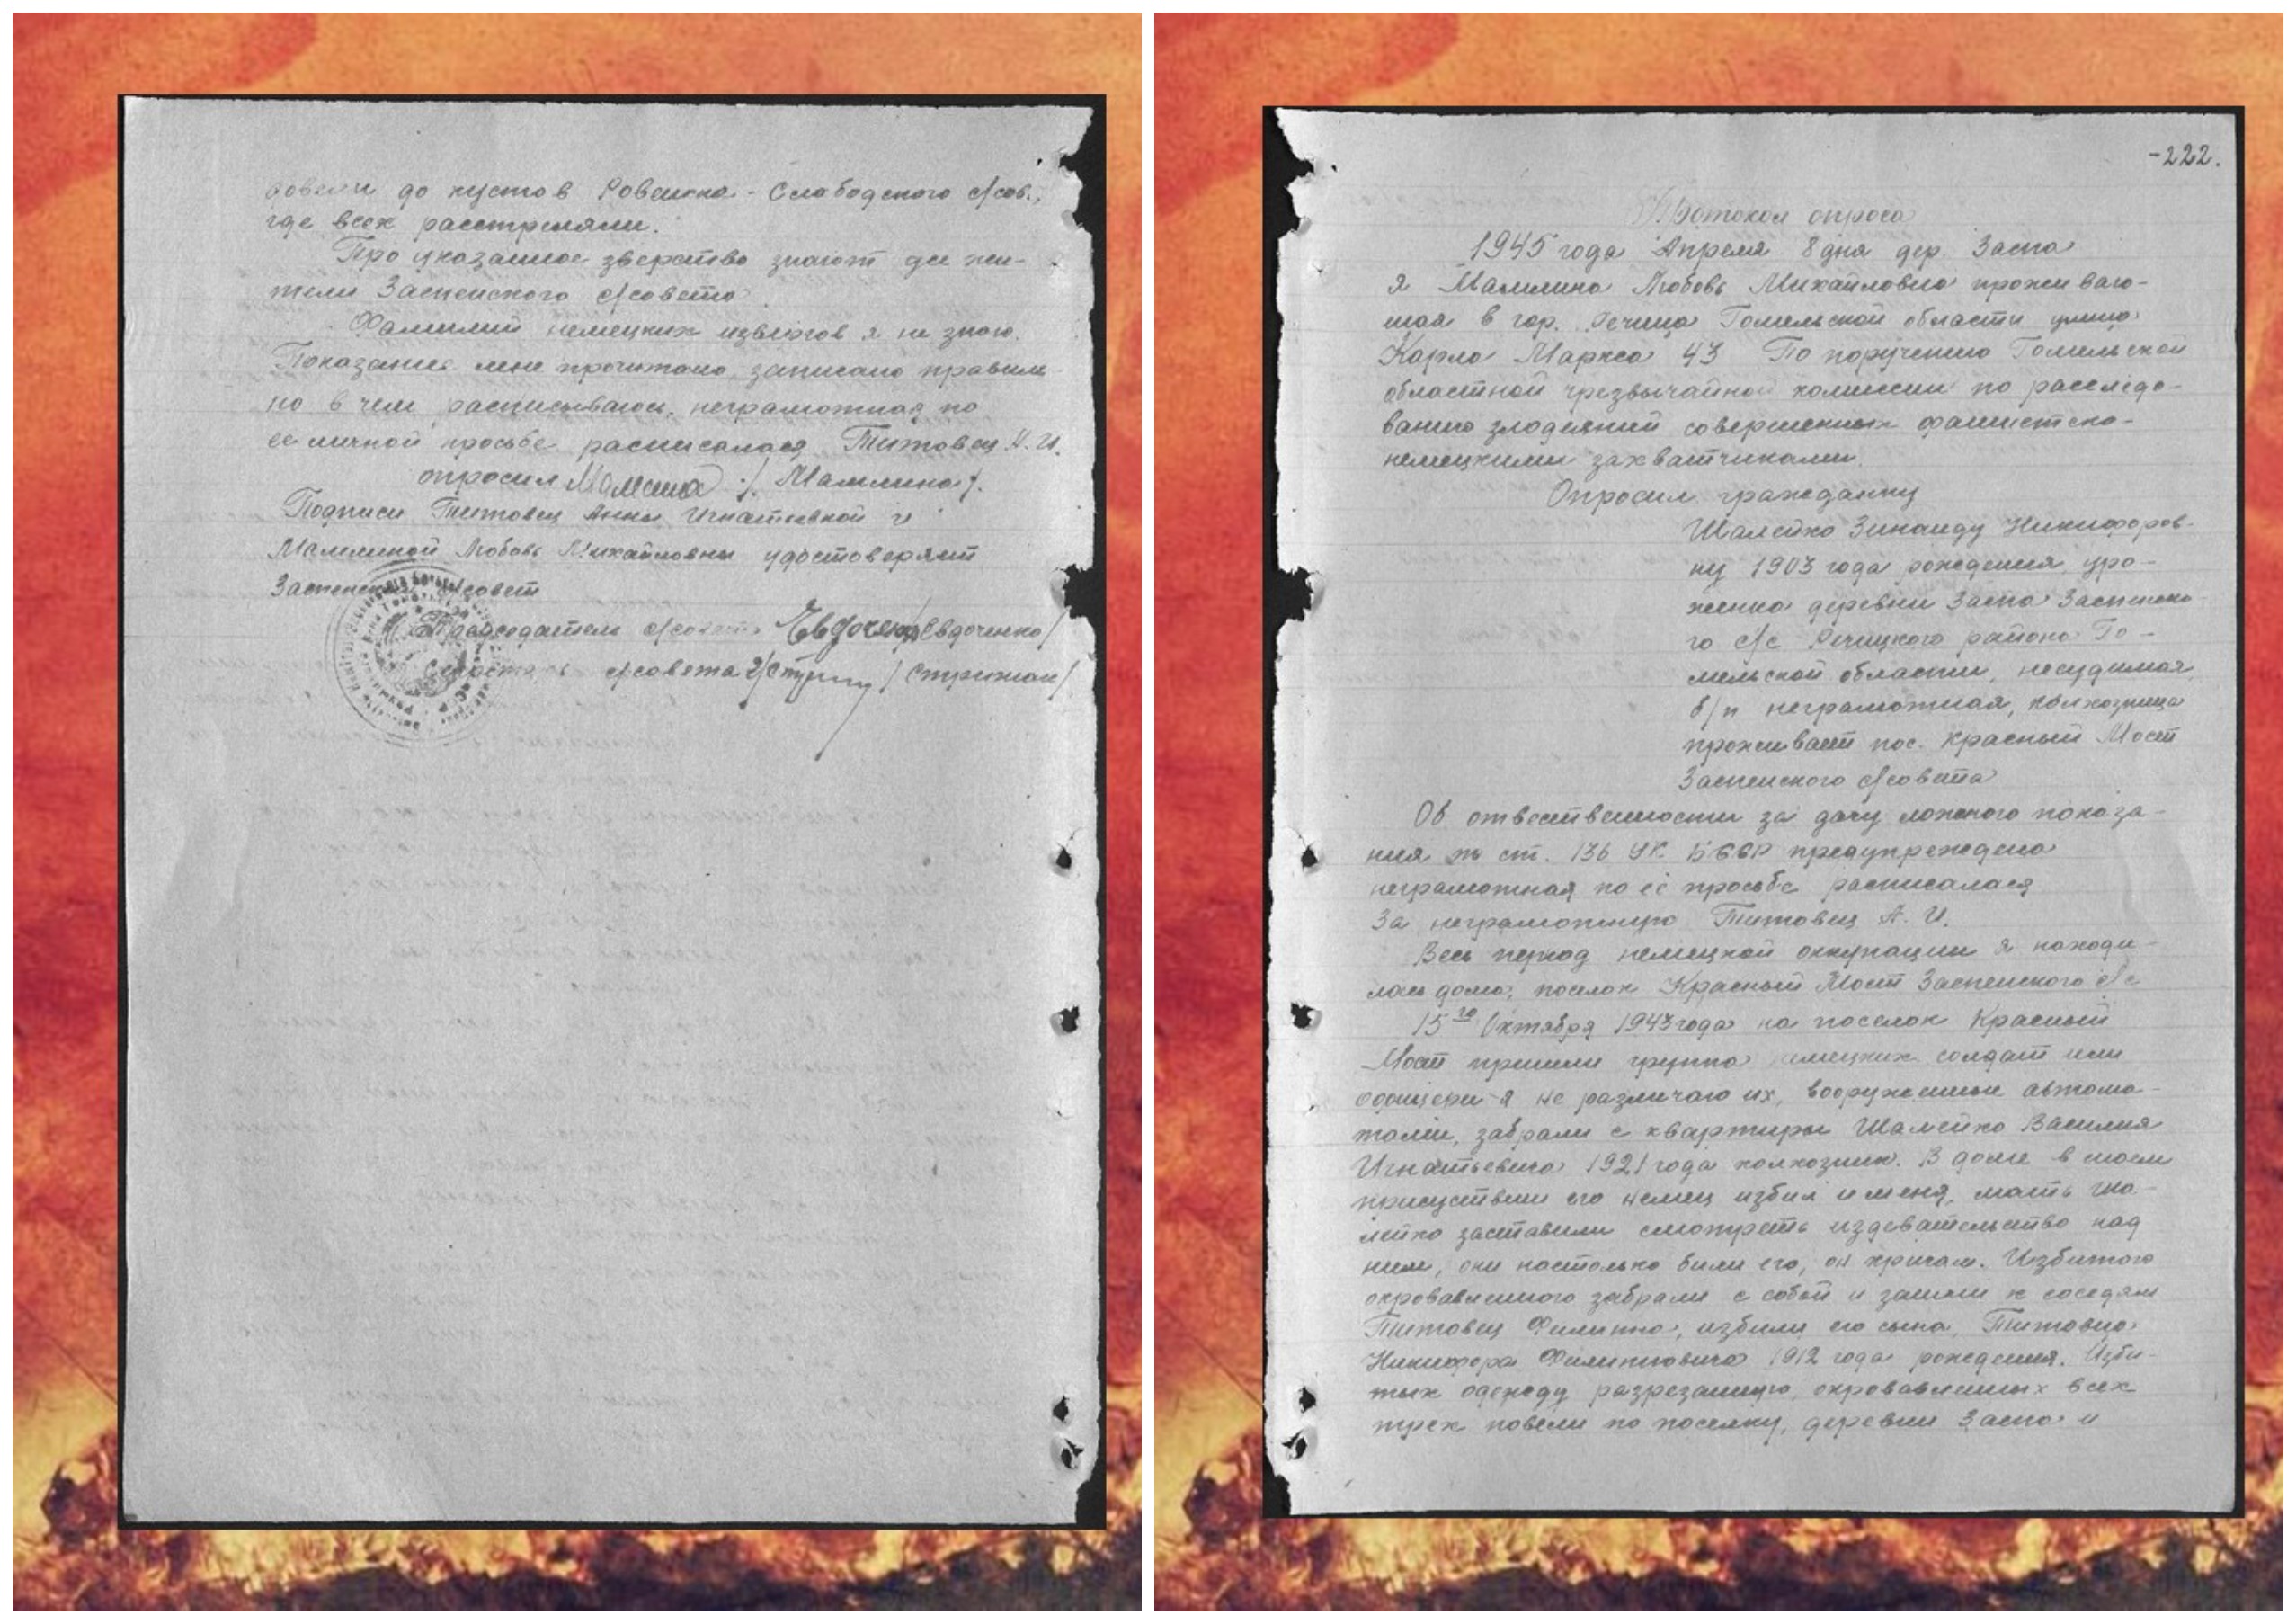 довели до кустов Ровенско-Слабодского с/сов.,
где всех расстреляли.
Про указанное зверство знают все жи-
тели Заспенского с/совета.
Фамилий немецких извергов я не знаю.
Показание мне прочитано, записано правиль
но в чем расписываюсь, неграмотная по
ее личной просьбе расписалася Титовец А. И.
опросил Малина /Малилина/.
Подписи Титовец Анны Игнатьевной и
Малилиной Любовь Михайловны удостоверяет
Заспенский с/совет
Председатель с/совета Евдоченко /Евдоченко/
с/совета /Стрижак/
-222.
Протокол опроса
1945 года Апреля 8 дня дер. Заспа
Я Малилина Любовь Михайловна проживаю-
щая в гор. Речица Гомельской области улица
Карла Маркса 43 По поручению Гомельской
областной чрезвычайной комиссии по расследо-
ванию злодеяний совершенных фашистско-
немецкими захватчиками.
Опросил гражданку
Шалейко Зинаиду Никифоров-
ну 1903 года рождения, уро-
женка деревни Заспа Заспенско-
го с/с Речицкого района Го-
мельской области, несудимая,
б/п неграмотная, колхозница
проживает пос. Красный Мост
Заспенского с/совета
Об отвественности за дачу ложного показа-
ния по ст. 136 УК БССР предупреждена
неграмотная по её просьбе расписалася
За неграмотную Титовец А. И.
Весь период немецкой оккупации я находи-
лась дома, поселок Красный Мост Заспенского с/с
15го Октября 1943 года на поселок Красный
Мост пришли группа немецких солдат или
офицеры я не различаю их, вооруженные автома-
тами, забрали с квартиры Шалейко Василия
Игнатьевича 1921 года колхозник. В доме в моем
присуствии его немец избил и меня, мать Ша-
лейко заставили смотреть издевательство над
ним, они настолько били его, он кричал. Избитого
окровавленного забрали с собой и зашли к соседям
Титовец Филиппа, избили его сына, Титовца
Никифора Филипповича 1912 года рождения. Изби-
тых одежду разрезанную, окровавленных всех
трех повели по поселку, деревни Заспа и